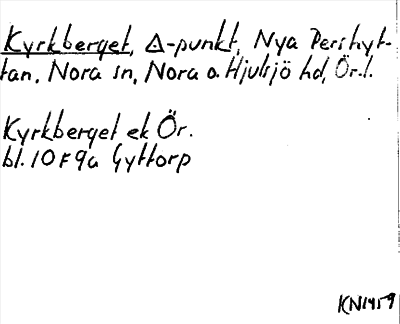 Kyrkberget, Δ-punkt, Nya Pershyt-
tan, Nora sn, Nora o. Hjulsjö hd, Ör. l.
Kyrkberget ek Ör.
bl. 10F9a Gyttorp
KN1959